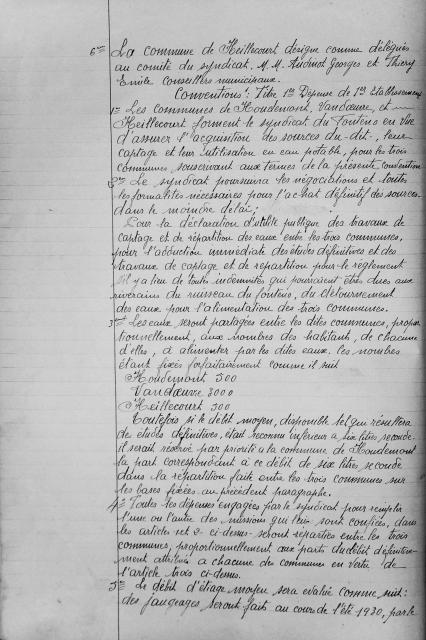 6° La commune de Heillecourt désigne comme délégués
au comité du syndicat, M.M. Audinot Georges et Thiery
Emile Conseillers municipaux.
Conventions: Titre 1er Dépense de 1er Etablissement
1° Les communes de Houdemont, Vandœuvre, et
Heillecourt forment le syndicat du fonteno en vue
d'assurer l'acquisition des sources du-dit, leur
captage et leur utilisation en eau potable, pour les trois
communes, souscrivant aux termes de la présente convention
2° Le syndicat poursuivra les négociations et toutes
les formalités nécessaires pour l'achat définitif des sources
dans le moindre délai;
Pour la déclaration d'utilité publique des travaux de
captage et de répartition des eaux entre les trois communes,
pour l'adduction immédiate des études définitives et des
travaux de captage et de répartition pour le règlement
s'il y a lieu de toutes indemnités qui pourraient êtres dues aux
riverains du ruisseau du fonteno, du détournement
des eaux pour l'alimentation des trois communes.
3° Les eaux seront partagées entre les dites communes, propor
tionnellement, aux nombres des habitants, de chacune
d'elles, à alimenter par les dites eaux, les nombres
étant fixés forfaitairement comme il suit
Houdemont 500
Vandœuvre 3000
Heillecourt 500
Toutefois si le débit moyen, disponible tel qui résultera
de études définitives, était reconnu inférieur à six litres seconde
il serait réservé par priorité a la commune de Houdemont
la part correspondant à ce débit de six litres seconde
dans la répartition faite entre les trois communes sur
les bases fixées au précédent paragraphe.
4° Toutes les dépenses engagées par le syndicat pour remplir
l'une ou l'autre des missions qui leur sont confiées, dans
les articles 1 et 2 ci-dessus seront réparties entre les trois
communes, proportionnellement aux parts du débit définitive
ment attribués a chacune des communes en vertu de
l'article trois ci-dessus.
5° Le débit d'étiage moyen sera évalué comme suit:
des jaugeages, seront faits au cours de l'été 1930, par le